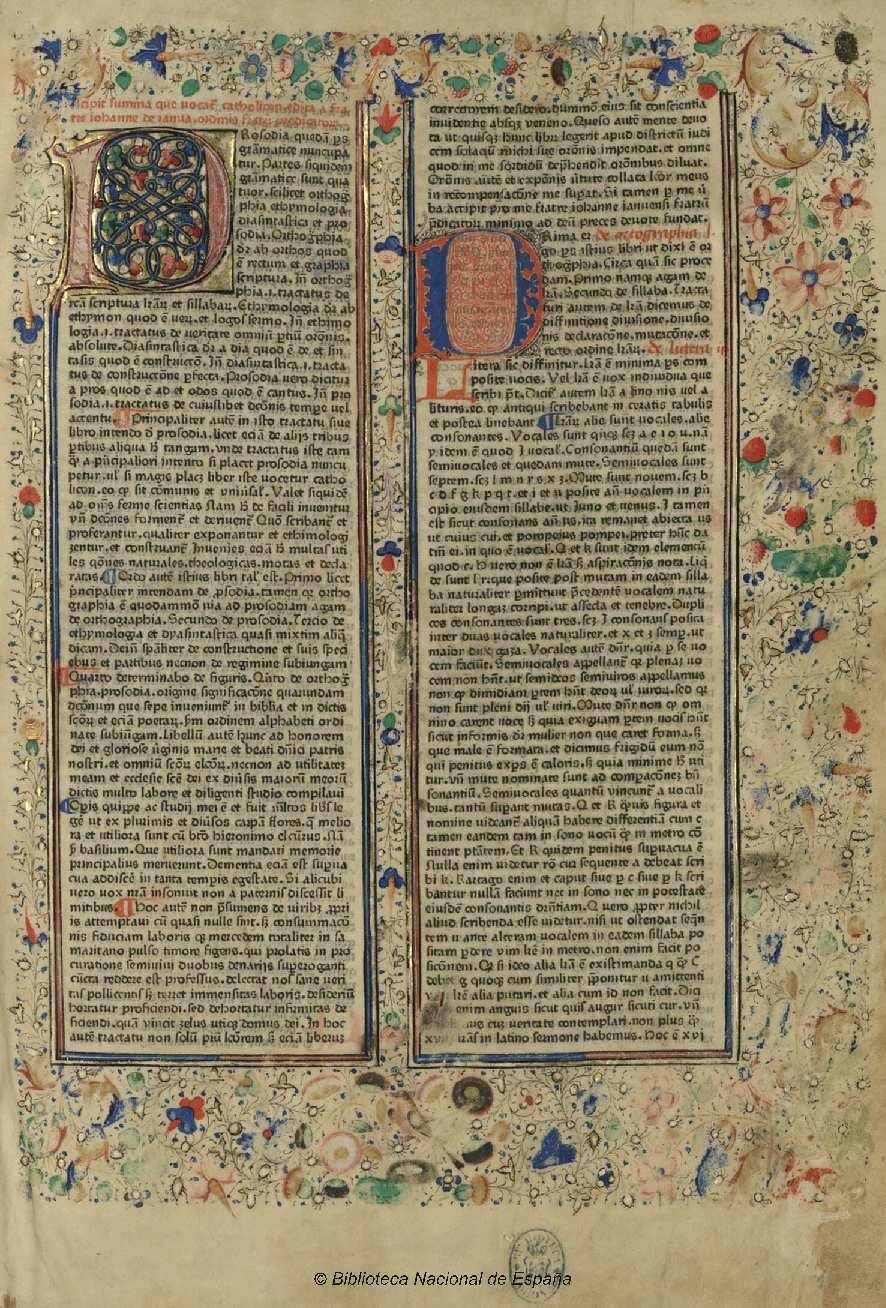 Incipit summa que uocat᷑ catholicon. edita a fra
tre iohanne de ianua. ordinis fratrū predicatoꝝ
PRosodia quedā ꝑs
grāmatice nuncupa
tur. Partes siquidem
grāmatice sunt qua
tuor. scilicet orthog̕
phia ethymologia
diasintastica et pro
sodia. Orthogphia
dr̄ ab orthos quod
ē rectum et graphia
scriptura. Jn̄ orthog̕
phia. i. tractatus de
rcā scriptura lrāꝝ et sillabaꝝ. Ethymologia dr̄ ab
ethymon quod ē ueꝝ. et logos sermo. Jn̄ ethimo
logia. i. tractatus de ueritate omniū ꝑtiū orōnis.
absolute. Diasintastica dr̄ a dia quod ē de et sin
tasis quod ē construccō. Jn̄ diasintastica. i. tracta
tus de construccōne ꝑfecta. Prosodia uero dicitur
a pros quod ē ad et odos quod ē cantus. Jn̄ pro
sodia. i. tractatus de cuiuslibet dcōnis tempe uel
accentu. Principaliter autē in isto tractatu siue
libro intendo d̄ prosodia. licet eciā de alijs tribus
ꝑtibus aliqua hͦ tangam. vnde tractatus iste tam
ꝙ a pͥncipaliori intento si placet prosodia nuncu
petur. ul̄ si magis placꝫ liber iste uocetur catho
licon. eo ꝙ sit cōmunis et vniūsal̄. Valet siquidē
ad oīns ferme sciencias nam hͦ de facili inuenitur
vn̄ dcōnes formenī et deriuenī. Quō scribanī et
proferantur. qualiter exponantur et ethimologi
zentur. et construanī. Jnuenies eciā hͦ multas uti
les qōnes naturales. theologicas. motas et decla
ratas. Ordo autē istius libri talꝭ est. Primo licet
pͥncipaliter intendam de ꝓsodia. tamen qꝛ ortho
graphia ē quodammō uia ad prosodiam agam
de orthographia. Secundo de prosodia. Tercio de
ethymologia et dyasintastica quasi mixtim aliqͣ
dicam. Deīn spāliter de constructione et suis speci
ebus et partibus necnon de regimine subiungam
Quarto determinabo de figuris. Qͥnto de orthog̕
phia. prosodia. origine significacōne quarundam
dcōnum que sepe inueniunī in biblia et in dictis
scōꝝ et eciā poetaꝝ. ꝑm ordinem alphabeti ordi
nate subiūgam. Libellū autē hunc ad honorem
dei et gloriose ūginis marie et beati dn̄ici patris
nostri. et omniū scōꝝ elcōꝝ. necnon ad utilitatez
meam et ecclesie scē dei ex diūsis maioꝝ meoꝝ
dictis multo labore et diligenti studio compilaui
Opis quippe ac studij mei ē et fuit mītos libꝝ le
ge ut ex plurimis et diūsos carpā flores. qͣ melio
ra et utiliora sunt cū btō hieronimo elcūrus. nā
ꝑ basilium. Que utiliora sunt mandari memorie
principalius meruerunt. Dementia eciā est supua
cua addiscē in tanta tempis egestate. Si alicubi
uero uox nrā insonuit non a paternis discessit li
mitibus. Hoc autē non pͥsumens de uiribꝫ ꝓpri
is attemptaui cū quasi nulle sint. sꝫ consummacō
nis fiduciam laboris qͣꝫ mercedem totaliter in sa
maritano pulso timore figens. qui prolatis in pro
curatione semiuiui duobus denarijs superoganti
cūcta reddere est professus. delectat nos sane ueri
tas pollicentis sꝫ terret immensitas laboris. desideriū
hortatur proficiendi. sed dehortatur infirmitas de
ficiendi. quā vincit zelus utiqꝫ domus dei. Jn hoc
autē tractatu non solū piū lcōrem sꝫ eciā liberuꝫ
correctorem desidero. dummō eius sit conscientia
inuidentie absqꝫ veneno. Queso autē mente deuo
ta ut quisqꝫ hunc libꝝ legerit apud districtū iudi
cem solaciū michi sue orōnis impendat. et omne
quod in me sordidū depͥhendit orōnibus diluat.
Orōnis autē et expōnis ūtute collata lcōr meus
in recompensacōne me supat. Si tamen ꝑ me ū
ba accipit pro me fratre iohanne ianuensi fratꝝ
pͥdicatoꝝ minimo ad deū preces deuote fundat.
De ortographia
PRima et
go ꝑs istius libri ut dixi ē or
thogphia. Circa quā sic proce
dam. Primo namqꝫ agam de
lrā. Secundo de sillaba. Tracta
turi autem de lrā dicemus de
diffinitione diuisione. diuisio
nis declaracōne. mutacōne. et
recto ordine lrāꝝ. De littera
Litera sic diffinitur. Lrā ē minima ꝑs com
posite uocis. Vel lrā ē uox indiuidua que
scribi pt̄. Diciī autem lrā a lino nis uel a
lituris. eo ꝙ antiqui scribebant in ceratis tabulis
et postea linebant. Lrāꝝ alie sunt uocales. alie
consonantes. Vocales sunt qͥnqꝫ sꝫ a e i o u. nā
y idem ē quod J uocal̄. Consonantiū quedā sunt
semiuocales et quedam mute. Semiuocales sunt
septem. scꝫ l m n r s x ꝫ. Mute sunt nouem. scꝫ b
c d f g k p q t. et i et u posite an̄ uocalem in pͥn
cipio eiusdem sillabe. ut Juno et uenus. J tamen
est sicut consonans an̄ us. ita remanet abiecta us
ut cuius cui. et pompeius pompei. preter huīc da
tm̄ ei. in quo ē uocal̄. Q et k sunt idem elementū
quod c. H uero non ē lrā sꝫ aspiracōnis nota. Liq̄
de sunt l r. que posite post mutam in eadem silla
ba naturaliter ꝑmittunt pͥcedentē vocalem natu
raliter longaꝫ corripi. ut assecla et tenebre. Dupli
ces consonantes sunt tres. scꝫ J consonans posita
inter duas uocales naturaliter. et x et ꝫ semꝑ. ut
maior dux gaza. Vocales autē dn̄r. quia ꝑ se uo
cem faciūt. Semiuocales appellanī qꝛ plenaꝫ uo
cem non hn̄t. ut semideos semiuiros appellamus
non qꝛ dimidiam ꝑtem hn̄t deoꝝ ul̄ uiroꝝ. sed qꝛ
non sunt pleni dij ul̄ uiri. Mute dn̄r non qꝛ om
nino carent uoce sꝫ quia exiguam ꝑtem uocis hn̄t
sicut informis dr̄ mulier non que caret forma. sꝫ
que male ē formata. et dicimus frigidū eum nō
qui penitus exꝑs ē caloris. sꝫ quia minime hͦ uti
tur. vn̄ mute nominate sunt ad compacōneꝫ bn̄
sonantiū. Semiuocales quantū vincunī a uocali
bus. tantū supant mutas. Q et k qͣuis figura et
nomine uideanī aliquā habere differentiā cum c
tamen eandem tam in sono uocū qͣꝫ in metro cō
tinent ptātem. Et k quidem penitus supuacua ē
nulla enim uidetur rō cur sequente a debeat scri
bi k. Kartago enim et caput siue ꝑ c siue ꝑ k scri
bantur nullā faciunt nec in sono nec in potestate
eiusdē consonantis drn̄tiam. Q uero ꝓpter nichil
aliud scribenda esse uidetur. nisi ut ostendat seqn̄
tem u ante alteram uocalem in eadem sillaba po
sitam ꝑdere vim lrē in metro. non enim facit po
sicōnem. Qꝛ si ideo alia lrā ē existimanda q qͣꝫ c
debet g quoqꝫ cum similiter pͥponitur u amittenti
lrē alia putari. et alia cum id non facit. Dici
enim anguis sicut quis augur sicuti cur. vn̄
cuꝫ ueritate contemplari. non plus qͣꝫ
xv lrās in latino sermone habemus. Hoc ē xvi
© Biblioteca Nacional de España